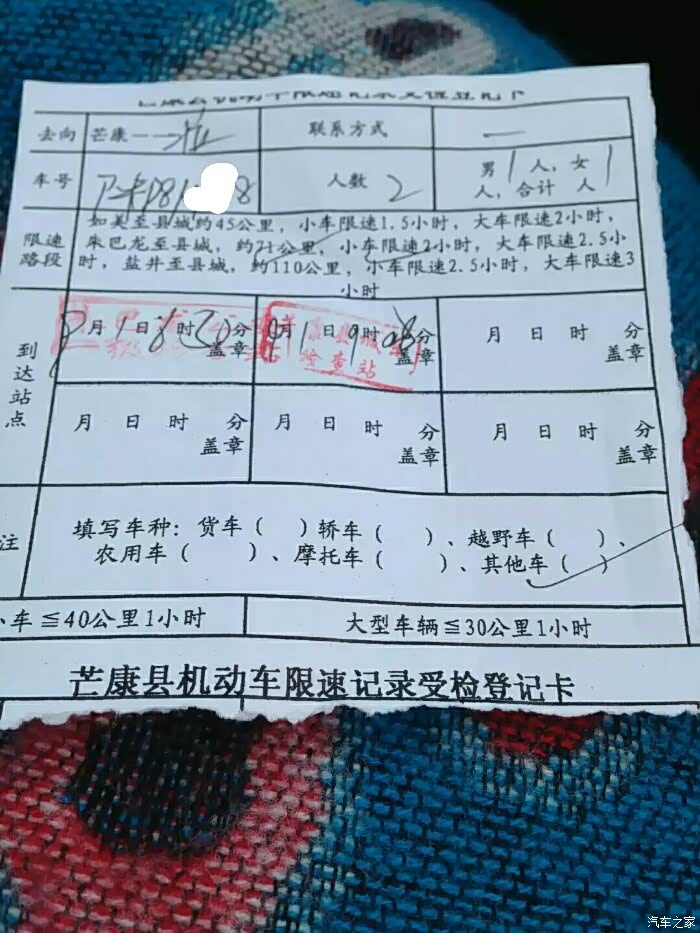 芒康县机动车限速记录受检登记卡
去向 芒康——
联系方式 —
车号
人数 2
男1人,女1
人,合计 人
限速
路段
如美至县城约45公里,小车限速1.5小时,大车限速2小时,
朱巴龙至县城,约71公里,小车限速2小时,大车限速2.5小
时,盐井至县城,约110公里,小车限速2.5小时,大车限速3
小时
到达站点
月1日8时 分
盖章
月1日9时08分
盖章
检查站
月 日 时 分
盖章
月 日 时 分
盖章
月 日 时 分
盖章
月 日 时 分
盖章
注
填写车种:货车( )轿车( )、越野车( )、
农用车( )、摩托车( )、其他车( )
小车≦40公里1小时
大型车辆≦30公里1小时
芒康县机动车限速记录受检登记卡
汽车之家